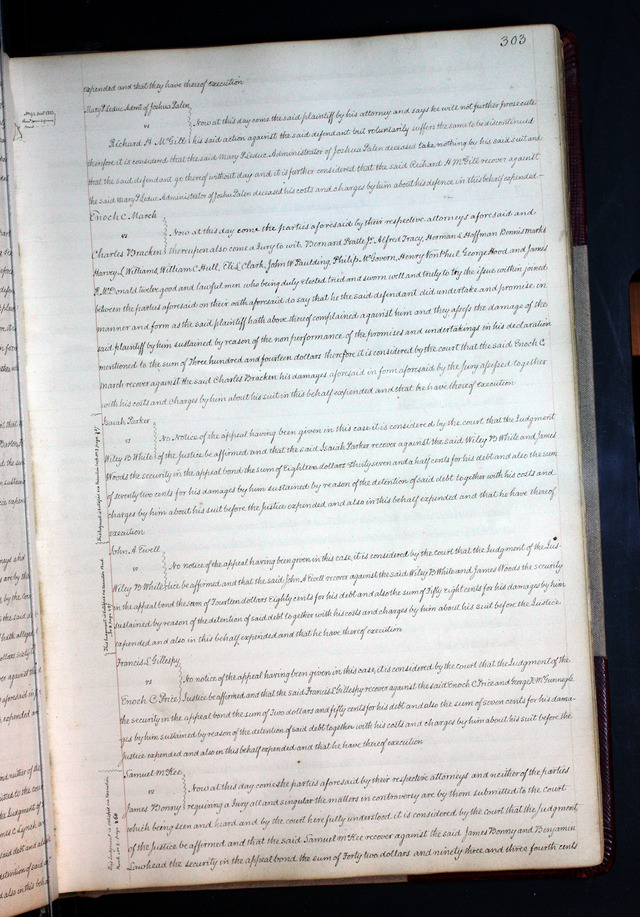 303
expended and that they have thereof execution
Mary P Leduc Admr of Joshua Palen
vs Now at this day come the said plaintiff by his attorney and says he will not further prosecute
Richard H McGill his said action against the said defendant but voluntarily suffers the same to be discontinued
therefore it is considered that the said Mary P Leduc Administrator of Joshua Palen deceased take nothing by his said suit and
that the said defendant go thereof without day and it is further considered that the said Richard H McGill recover against
the said Mary P Leduc Administrator of Joshua Palen deceased his costs and charges by him about his defence in this behalf expended
Enoch C. March
vs Now at this day come the parties aforesaid by their respective attorneys aforesaid and
Charles Bracken thereupon also come a Jury to wit. Bernard Jr. Alfred Tracy, Herman L Hoffman Dennis Marks
Harvey L Williams, William C Hull, Eli L Clark, John W Paulding, Philip McGovern, Henry Von Phul George Hood, and James
R McDonald twelve good and lawful men who being duly elected tried and sworn well and truly to try the issue within joined
between the parties aforesaid on their oath aforesaid do say that he the said defendant did undertake and promise in
manner and form as the said plaintiff hath above thereof complained against him and they assess the damage of the
said plaintiff by him sustained by reason of the non performance of the promises and undertakings in his declaration
mentioned to the sum of Three hundred and fourteen dollars therefore it is considered by the court that the said Enoch C.
March recover against the said Charles Bracken his damages aforesaid in form aforesaid by the Jury assessed together
with his costs and charges by him about his suit in this behalf expended and that he have thereof execution
Isaiah Parker
vs No Notice of the appeal having been given in this case it is considered by the court that the Judgment
Wiley B White of the Justice be affirmed and that the said Isaiah Parker recover against the said Wiley B White and James
Woods the security in the appeal bond the sum of Eighteen dollars Thirty seven and a half cents for his debt and also the sum
of seventy two cents for his damages by him sustained by reason of the detention of said debt together with his costs and
charges by him about his suit before the Justice expended and also in this behalf expended and that he have thereof
execution
John A Ewell
vs No notice of the appeal having been given in this case, it is considered by the court that the Judgment of the Jus-
Wiley B White tice be affirmed and that the said John A Ewell recover against the said Wiley B White and James Woods the security
in the appeal bond the sum of Fourteen dollars Eighty cents for his debt and also the sum of Fifty eight cents for his damages by him
sustained by reason of the detention of said debt together with his costs and charges by him about his suit before the Justice
expended and also in this behalf expended and that he have thereof execution
Francis L Gillespy
vs No notice of the appeal having been given in this case, it is considered by the court that the Judgment of the
Enoch C. Price Justice be affirmed, and that the said Francis L Gillespy recover against the said Enoch C Price and George K McGunnegle
the security in the appeal bond the sum of Two dollars and fifty cents for his debt and also the sum of seven cents for his dama-
ges by him sustained by reason of the detention of said debt together with his costs and charges by him about his suit before the
Justice expended and also in this behalf expended and that he have thereof execution
Samuel McKee
vs Now at this day come the parties aforesaid by their respective attorneys and neither of the parties
James Bonny requiring a Jury all and singular the matters in controversy are by them submitted to the Court
which being seen and heard and by the court here fully understood it is considered by the court that the Judgment
of the Justice be affirmed and that the said Samuel McKee recover against the said James Bonny and Benjamin
Lawhead the security in the appeal bond the sum of Forty two dollars and ninety three and three fourth cents